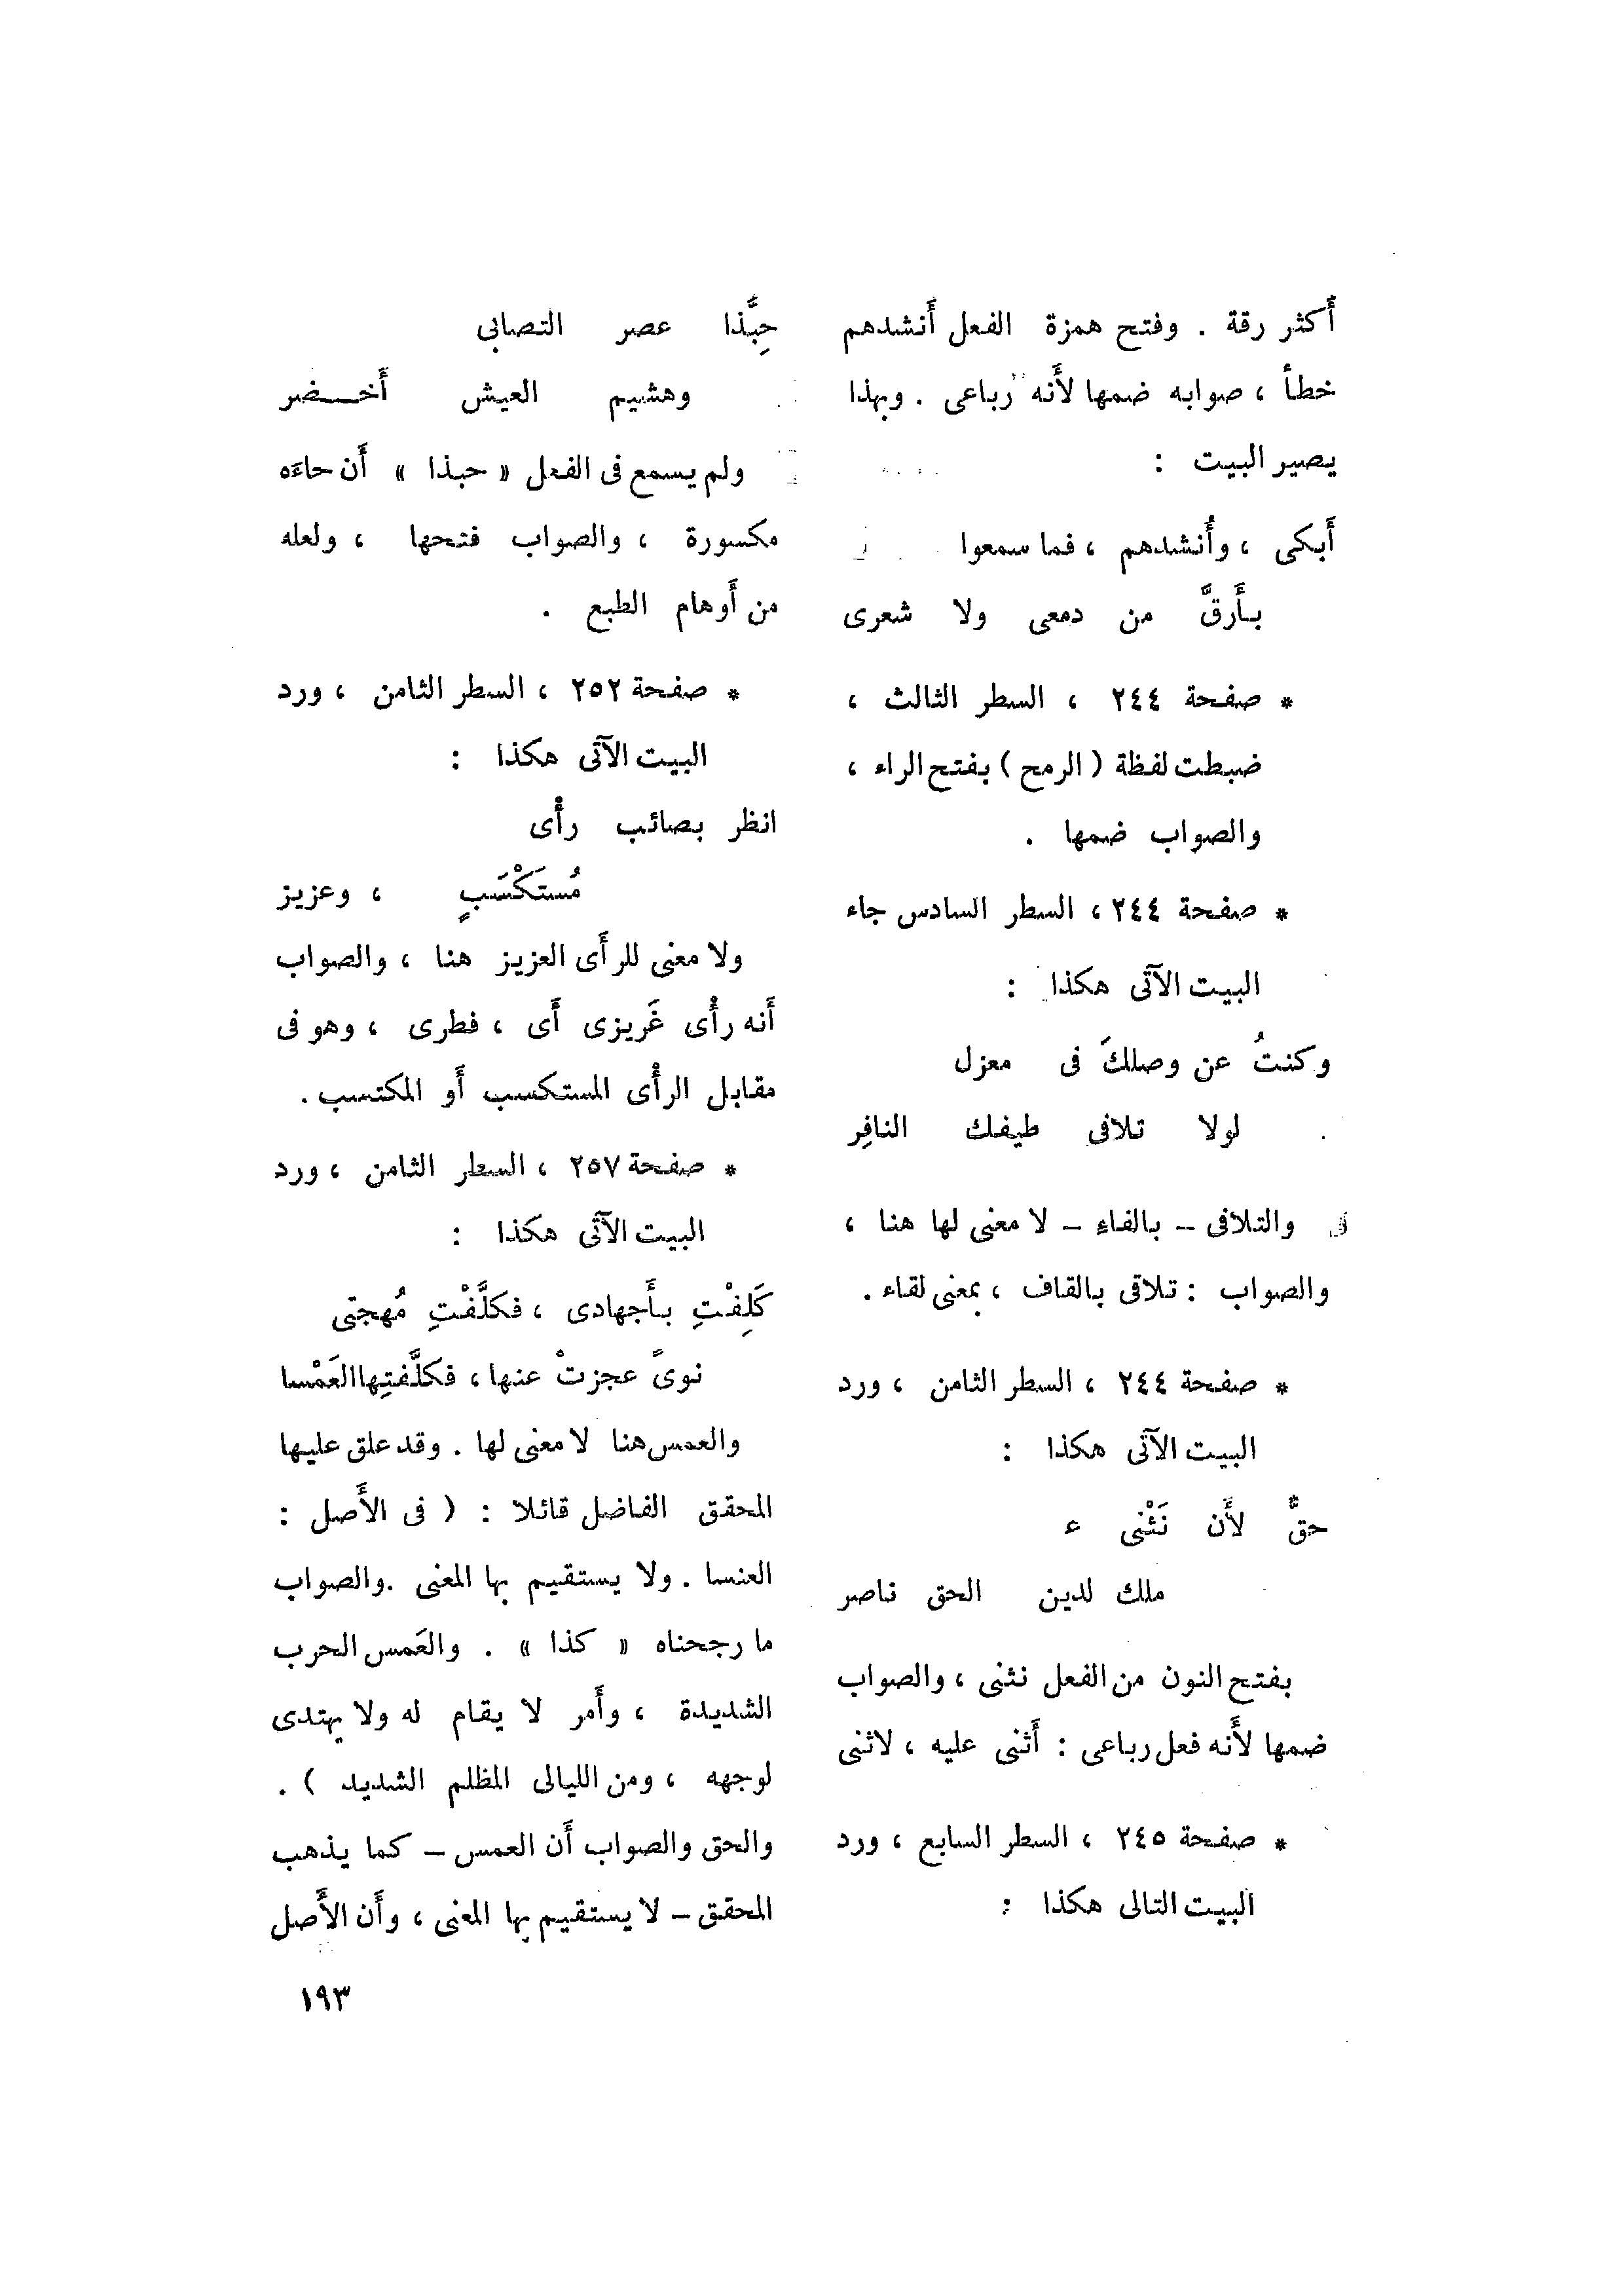 أَكثر رقة . وفتح همزة الفعل أَنشدهم
خطأ ، صوابه ضمها لأَنه رباعى . وبهذا
يصير البيت :
أَبكى ، وأُنشدهم ، فما سمعوا
بأَرقَّ من دمعى ولا شعرى
* صفحة ٢٤٤ ، السطر الثالث ،
ضبطت لفظة ( الرمح ) بفتح الراء ،
والصواب ضمها .
* صفحة ٢٤٤ ، السطر السادس جاء
البيت الآتى هكذا :
وكنتُ عن وصلكَ فى معزل
لولا تلافى طيفك النافِر
والتلافى – بالفاءِ – لا معنى لها هنا ،
والصواب : تلاقى بالقاف ، بمعنى لقاء .
* صفحة ٢٤٤ ، السطر الثامن ، ورد
البيت الآتى هكذا :
حقٌّ لأَن نَثْنى ء
ملك لدين الحق ناصر
بفتح النون من الفعل نثنى ، والصواب
ضمها لأَنه فعل رباعى : أَثنى عليه ، لاثنى
* صفحة ٢٤٥ ، السطر السابع ، ورد
البيت التالى هكذا :
حِبَّذا عصر التصابى
وهشيم العيش أَخـــضر
ولم يسمع فى الفعل « حبذا » أَن حاءَه
مكسورة ، والصواب فتحها ، ولعله
من أَوهام الطبع .
* صفحة ٢٥٢ ، السطر الثامن ، ورد
البيت الآتى هكذا :
انظر بصائب رأْى
مُستَكْسَبٍ ، وعزيز
ولا معنى للرأَى العزيز هنا ، والصواب
أَنه رأْى غَريزى أَى ، فطرى ، وهو فى
مقابل الرأْى المستكسب أَو المكتسب .
* صفحة ٢٥٧ ، السطر الثامن ، ورد
البيت الآتى هكذا :
كَلِفْتِ بأَجهادى ، فكلَّفْتِ مُهجتى
نوىً عجزتْ عنها ، فكلَّفتِها العَمْسا
والعمس هنا لا معنى لها . وقد علق عليها
المحقق الفاضل قائلا : ( فى الأَصل :
العنسا . ولا يستقيم بها المعنى . والصواب
ما رجحناه « كذا » . والعَمس الحرب
الشديدة ، وأَمر لا يقام له ولا يهتدى
لوجهه ، ومن الليالى المظلم الشديد ) .
والحق والصواب أَن العمس – كما يذهب
المحقق – لا يستقيم بها المعنى ، وأَن الأَصل
١٩٣